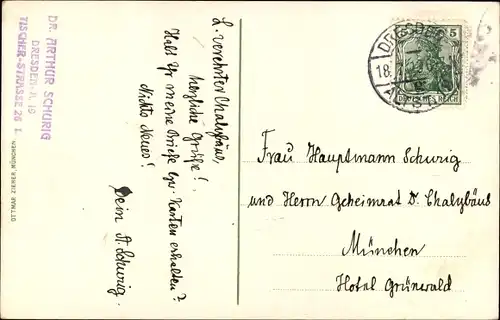 DR. ARTHUR SCHURIG
DRESDEN-A. 16
TISCHER-STRASSE 26 I.
OTTMAR ZIEHER, MÜNCHEN
L. verehrter Chalybäus,
herzliche Grüße!
Habt Ihr meine Briefe bez. Karten erhalten?
Nichts Neues!
Dein A. Schurig.
DRESDEN
18.
5
DEUTSCHES REICH
Frau Hauptmann Schurig
und Herrn Geheimrat Dr. Chalybäus
München
Hotel Grünwald